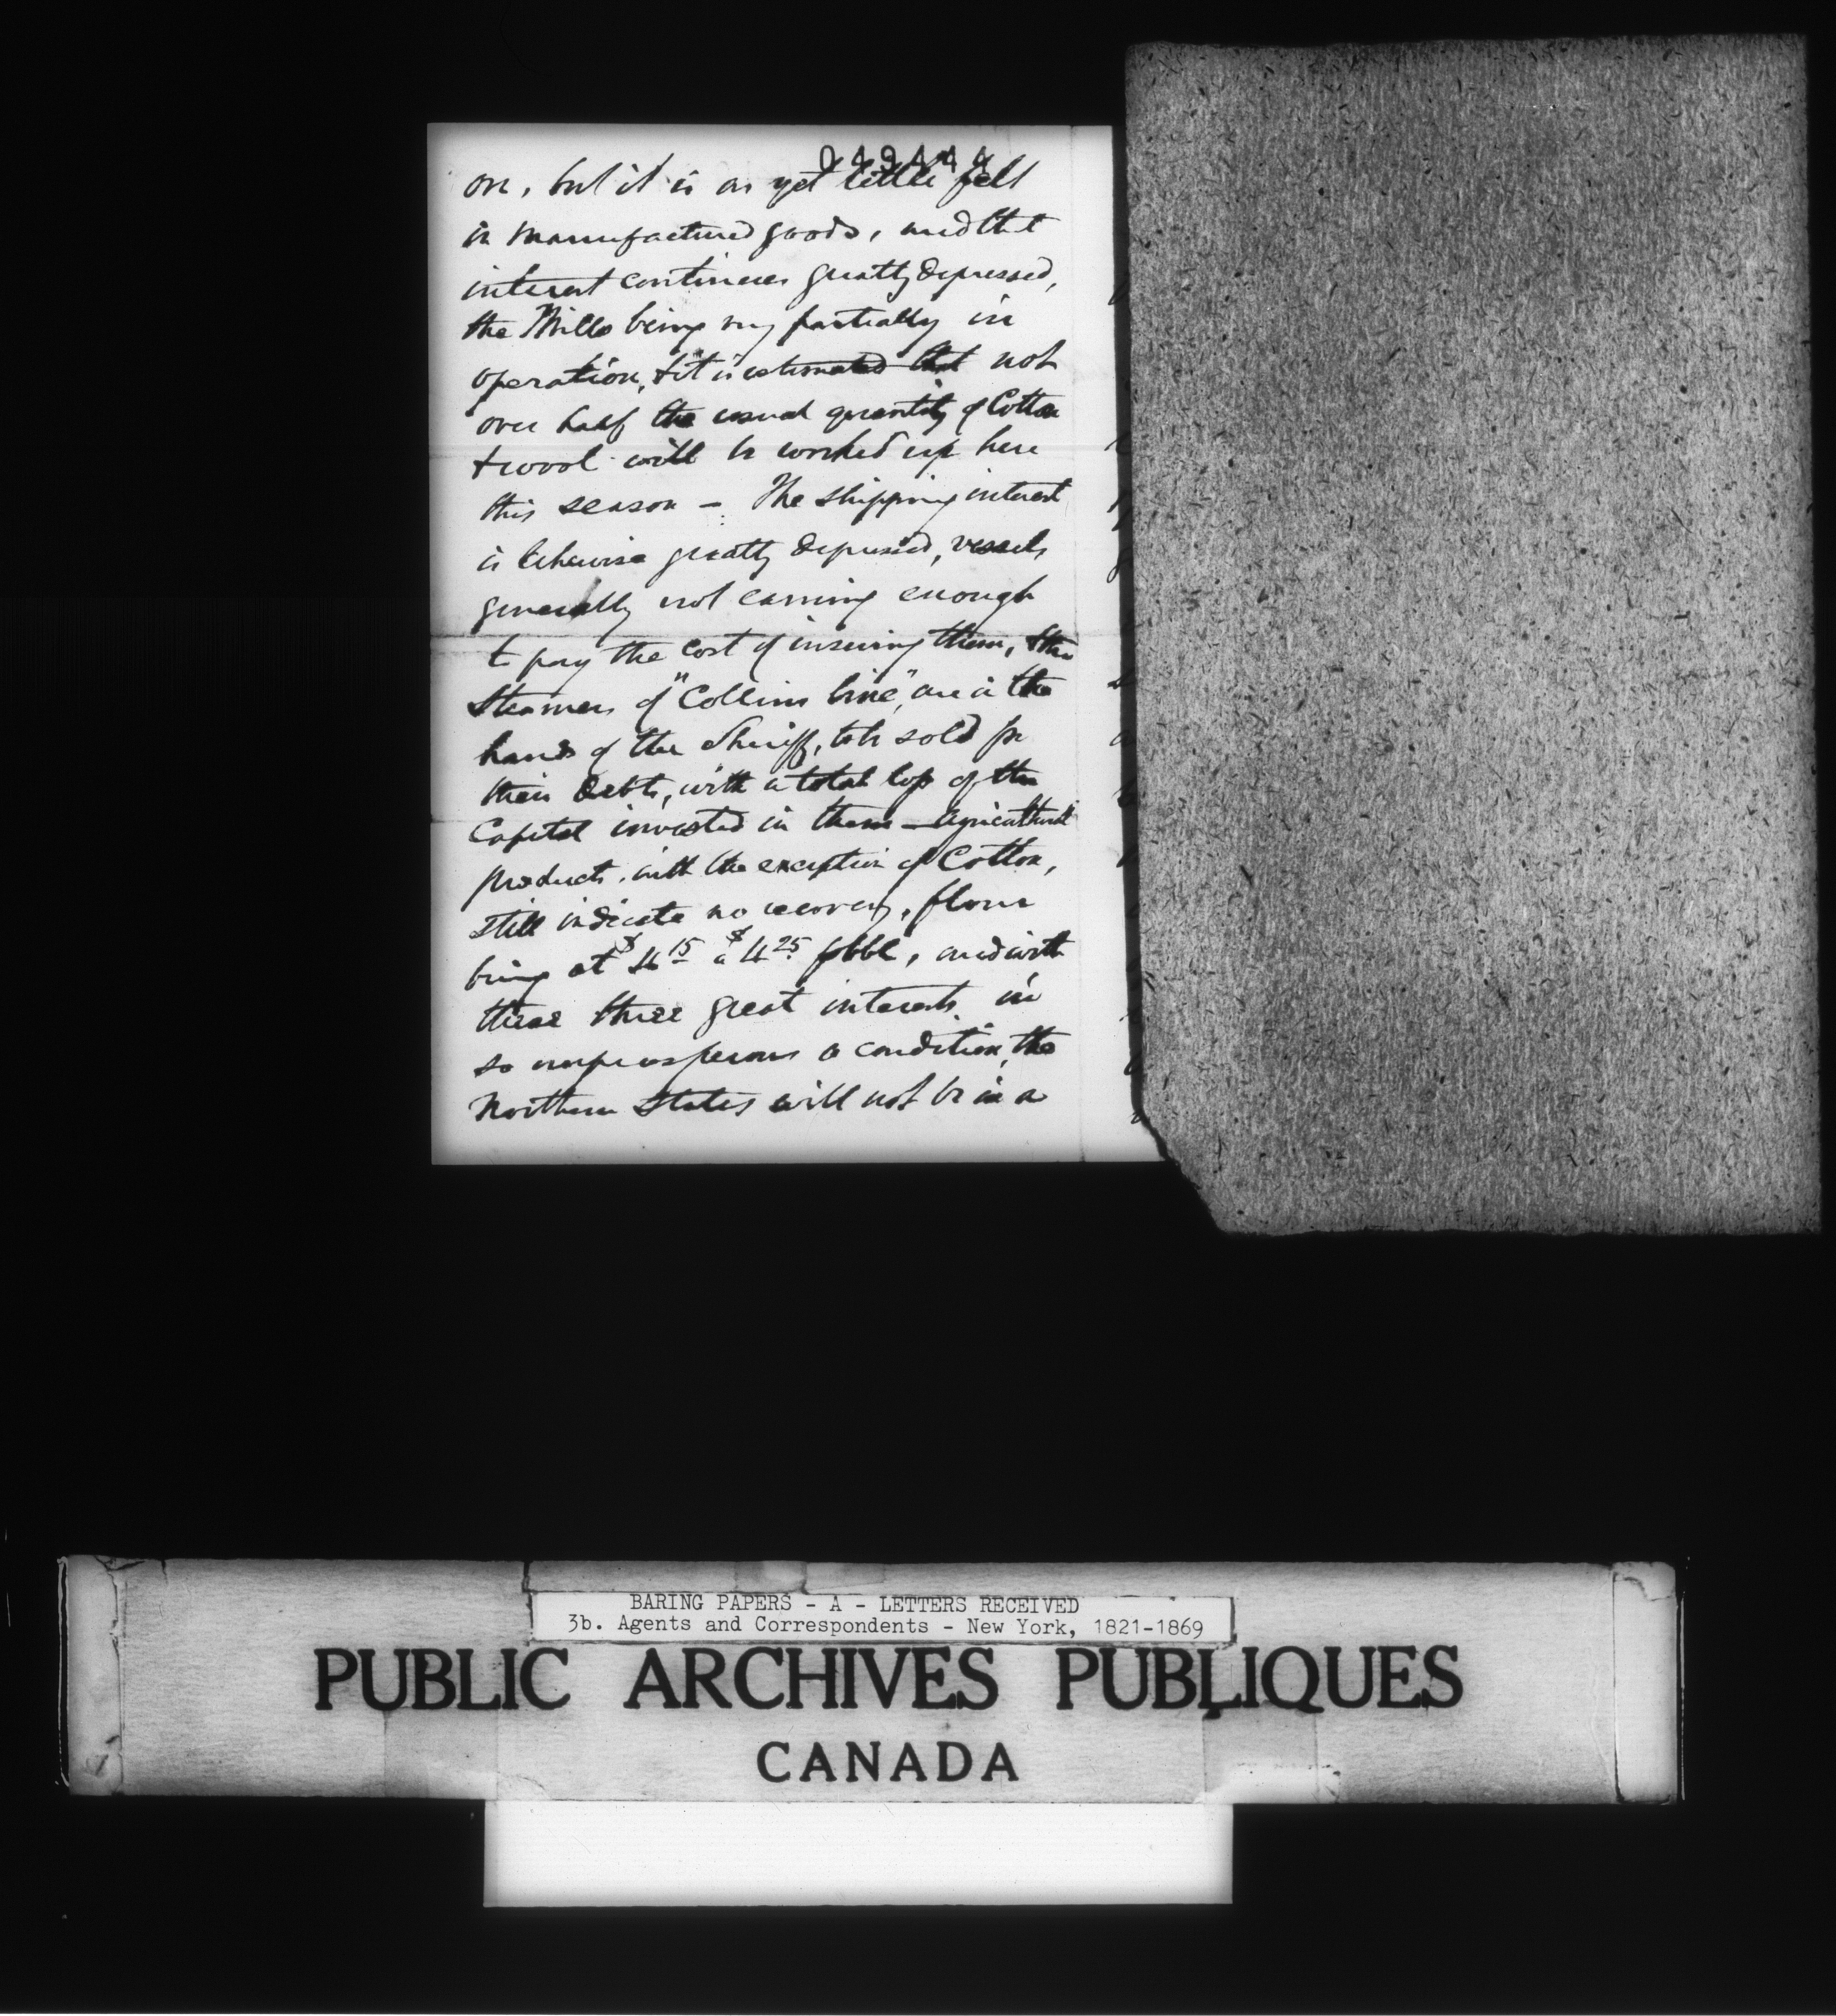 049444
on, but it is as yet little felt
in manufactured goods, and that
interest continues greatly depressed,
the Mills being very partially in
operation, & it is estimated that not
over half the usual quantity of Cotton
& wool will be worked up here
this season – The shipping interest
is likewise greatly depressed, vessels
generally not earning enough
to pay the cost of insuring them, & the
steamers of "Collins line", are in the
hands of the Sheriff, to be sold for
their debts, with a total loss of the
Capital invested in them – Agricultural
products, with the exception of Cotton,
still indicate no recovery, flour
being at $4 15 a $4 25 p bbl, and with
these three great interests in
so unprosperous a condition, the
Northern States will not be in a
BARING PAPERS - A - LETTERS RECEIVED
3b. Agents and Correspondents - New York, 1821-1869
PUBLIC ARCHIVES PUBLIQUES
CANADA